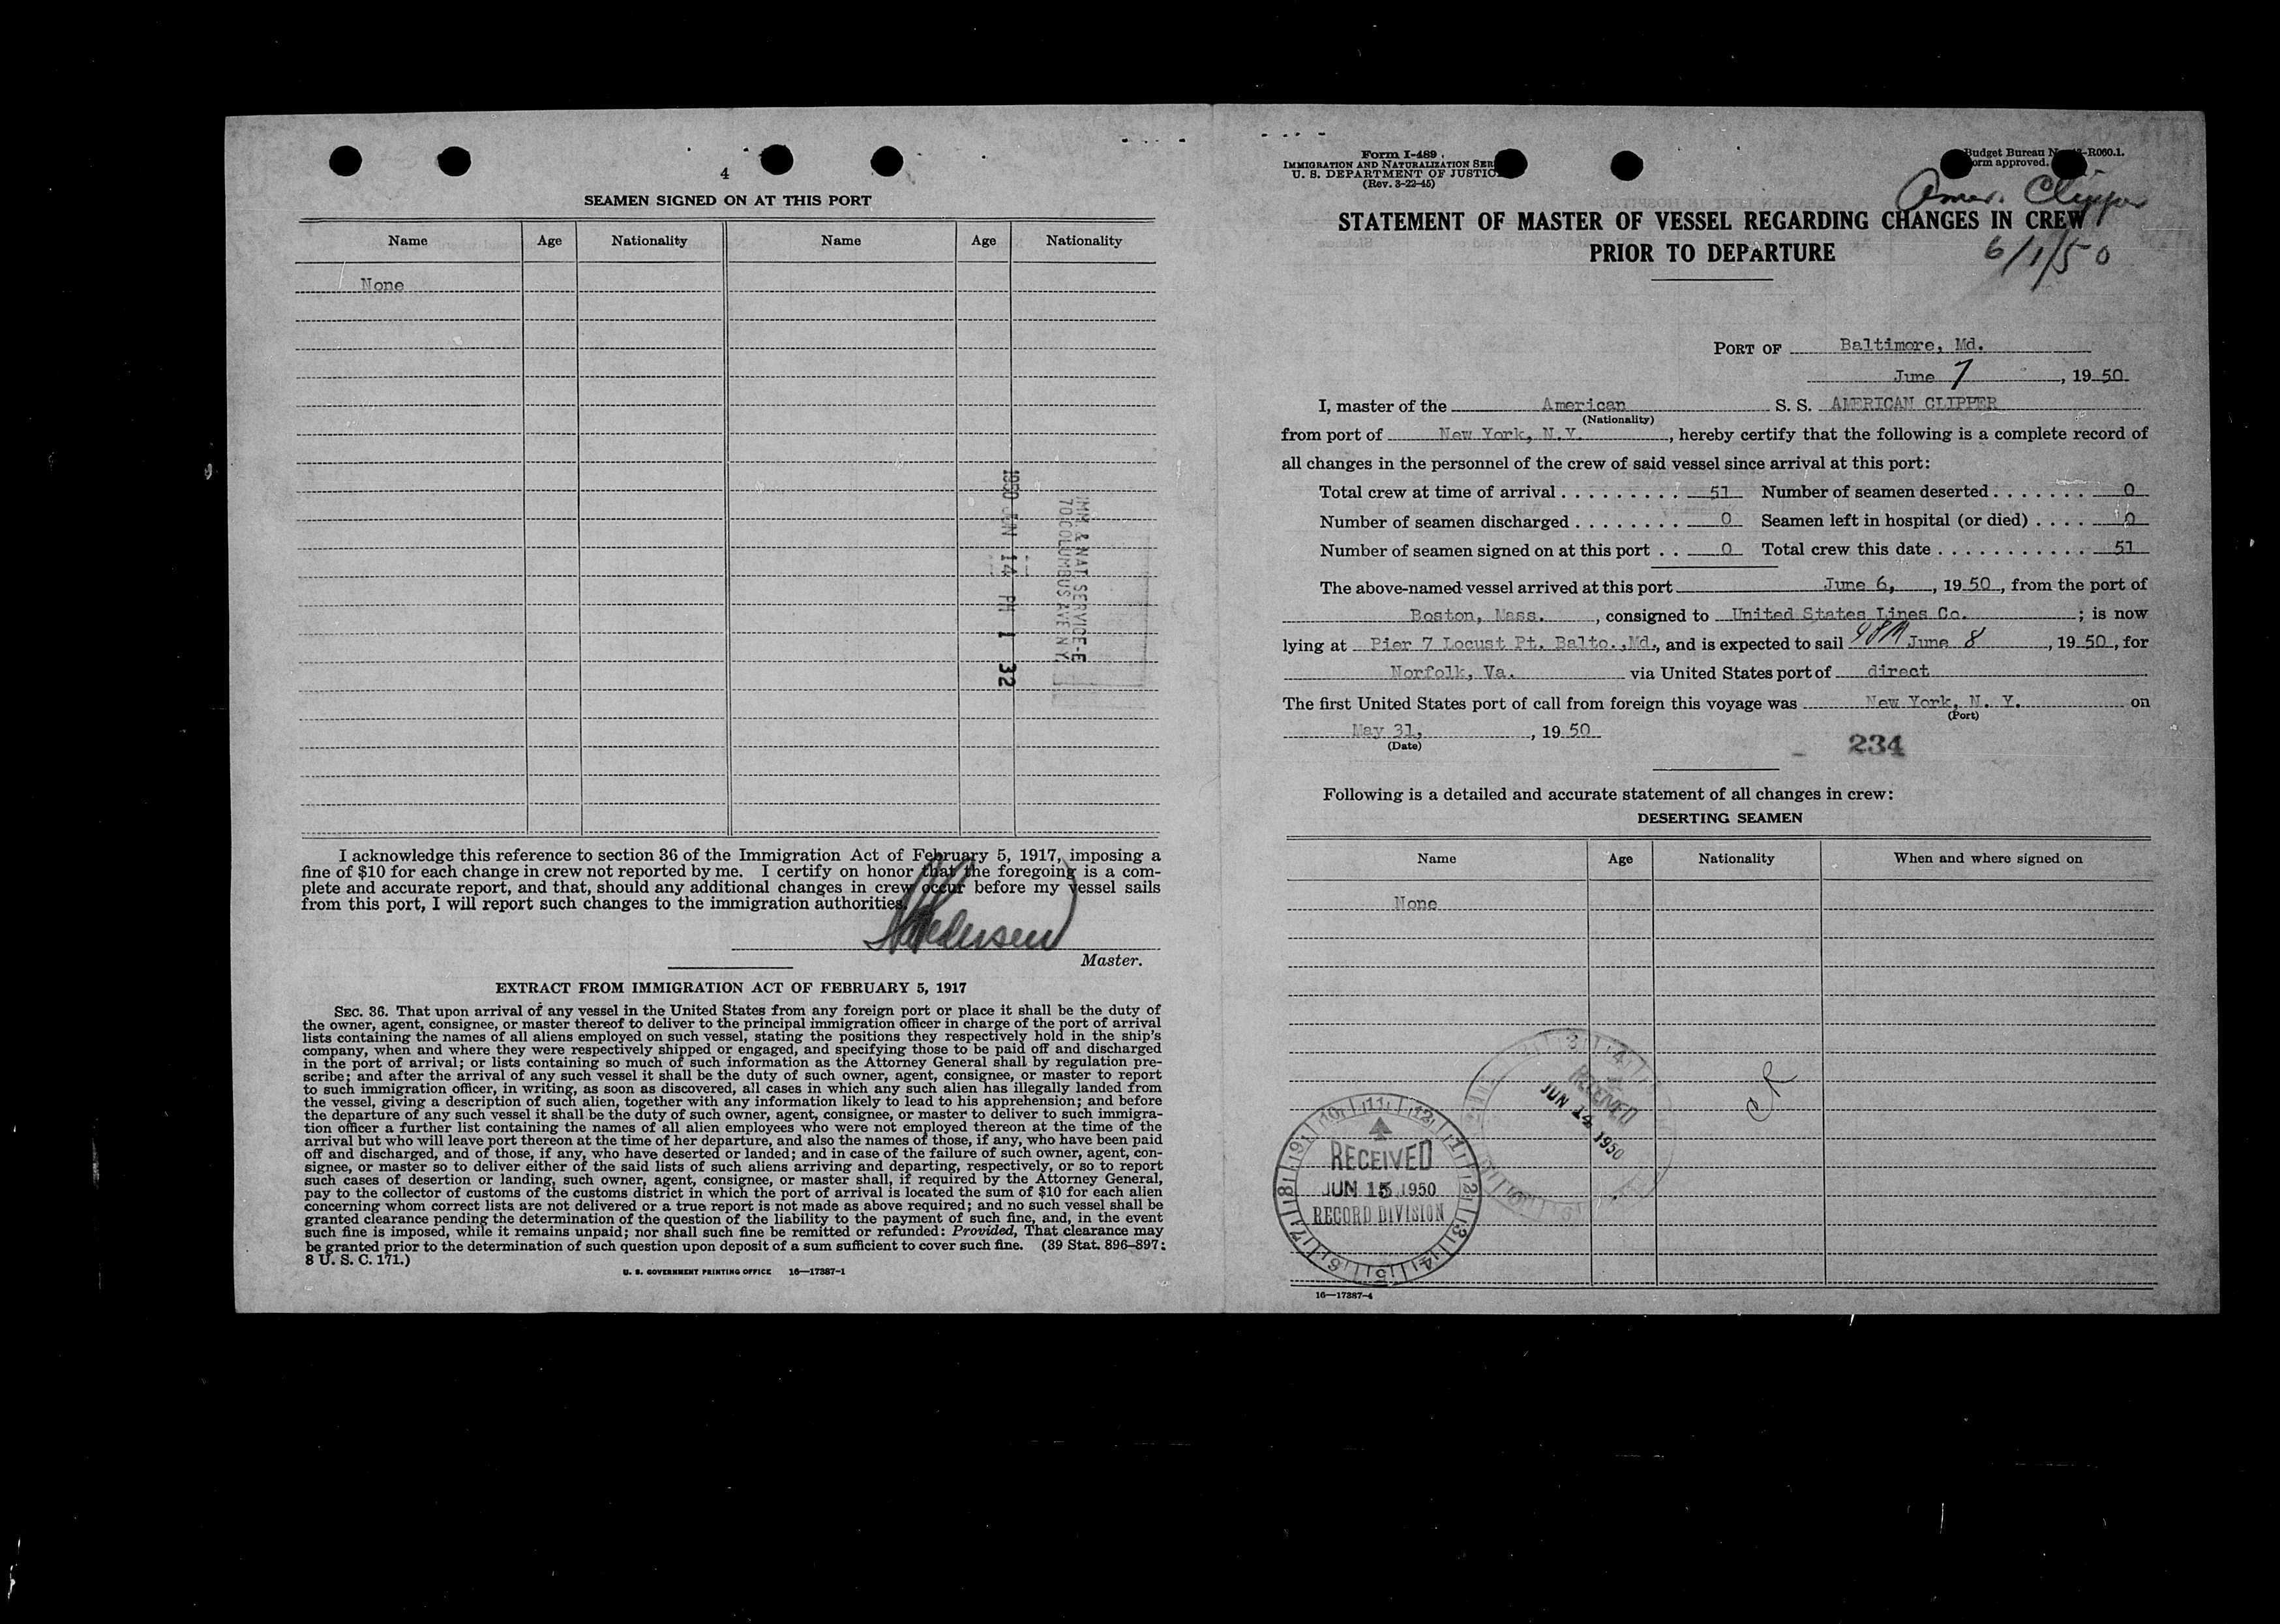 4
SEAMEN SIGNED ON AT THIS PORT
Name Age Nationality Name Age Nationality
None
1950 JUN 14 PM 1 32
IMM & NAT. SERVICE-E
70 COLUMBUS AVE N.Y.
I acknowledge this reference to section 36 of the Immigration Act of February 5, 1917, imposing a
fine of $10 for each change in crew not reported by me. I certify on honor that the foregoing is a com-
plete and accurate report, and that, should any additional changes in crew occur before my vessel sails
from this port, I will report such changes to the immigration authorities.
Master.
EXTRACT FROM IMMIGRATION ACT OF FEBRUARY 5, 1917
SEC. 36. That upon arrival of any vessel in the United States from any foreign port or place it shall be the duty of
the owner, agent, consignee, or master thereof to deliver to the principal immigration officer in charge of the port of arrival
lists containing the names of all aliens employed on such vessel, stating the positions they respectively hold in the ship's
company, when and where they were respectively shipped or engaged, and specifying those to be paid off and discharged
in the port of arrival; or lists containing so much of such information as the Attorney General shall by regulation pre-
scribe; and after the arrival of any such vessel it shall be the duty of such owner, agent, consignee, or master to report
to such immigration officer, in writing, as soon as discovered, all cases in which any such alien has illegally landed from
the vessel, giving a description of such alien, together with any information likely to lead to his apprehension; and before
the departure of any such vessel it shall be the duty of such owner, agent, consignee, or master to deliver to such immigra-
tion officer a further list containing the names of all alien employees who were not employed thereon at the time of the
arrival but who will leave port thereon at the time of her departure, and also the names of those, if any, who have been paid
off and discharged, and of those, if any, who have deserted or landed; and in case of the failure of such owner, agent, con-
signee, or master so to deliver either of the said lists of such aliens arriving and departing, respectively, or so to report
such cases of desertion or landing, such owner, agent, consignee, or master shall, if required by the Attorney General,
pay to the collector of customs of the customs district in which the port of arrival is located the sum of $10 for each alien
concerning whom correct lists are not delivered or a true report is not made as above required; and no such vessel shall be
granted clearance pending the determination of the question of the liability to the payment of such fine, and, in the event
such fine is imposed, while it remains unpaid; nor shall such fine be remitted or refunded: Provided, That clearance may
be granted prior to the determination of such question upon deposit of a sum sufficient to cover such fine. (39 Stat. 896-897;
8 U. S. C. 171.)
U. S. GOVERNMENT PRINTING OFFICE 16—17387-1
Form I-489
IMMIGRATION AND NATURALIZATION SER
U. S. DEPARTMENT OF JUSTIC
(Rev. 3-22-45)
Budget Bureau N -R060.1.
orm approved.
Amer. Clipper
STATEMENT OF MASTER OF VESSEL REGARDING CHANGES IN CREW
PRIOR TO DEPARTURE
6/1/50
PORT OF Baltimore, Md.
June 7, 1950
I, master of the American S. S. AMERICAN CLIPPER
(Nationality)
from port of New York, N.Y., hereby certify that the following is a complete record of
all changes in the personnel of the crew of said vessel since arrival at this port:
Total crew at time of arrival . . . . . . . . . 51 Number of seamen deserted . . . . . . . 0
Number of seamen discharged . . . . . . . . 0 Seamen left in hospital (or died) . . . . 0
Number of seamen signed on at this port . . 0 Total crew this date . . . . . . . . . . . 51
The above-named vessel arrived at this port June 6, , 1950, from the port of
Boston, Mass. , consigned to United States Lines Co. ; is now
lying at Pier 7 Locust Pt. Balto.,Md., and is expected to sail June 8 , 1950, for
Norfolk, Va. via United States port of direct
The first United States port of call from foreign this voyage was New York, N. Y. on
(Port)
May 31, , 1950
(Date)
234
Following is a detailed and accurate statement of all changes in crew:
DESERTING SEAMEN
Name Age Nationality When and where signed on
None
RECEIVED
JUN 14 1950
RECEIVED
JUN 15 1950
RECORD DIVISION
16—17387-4